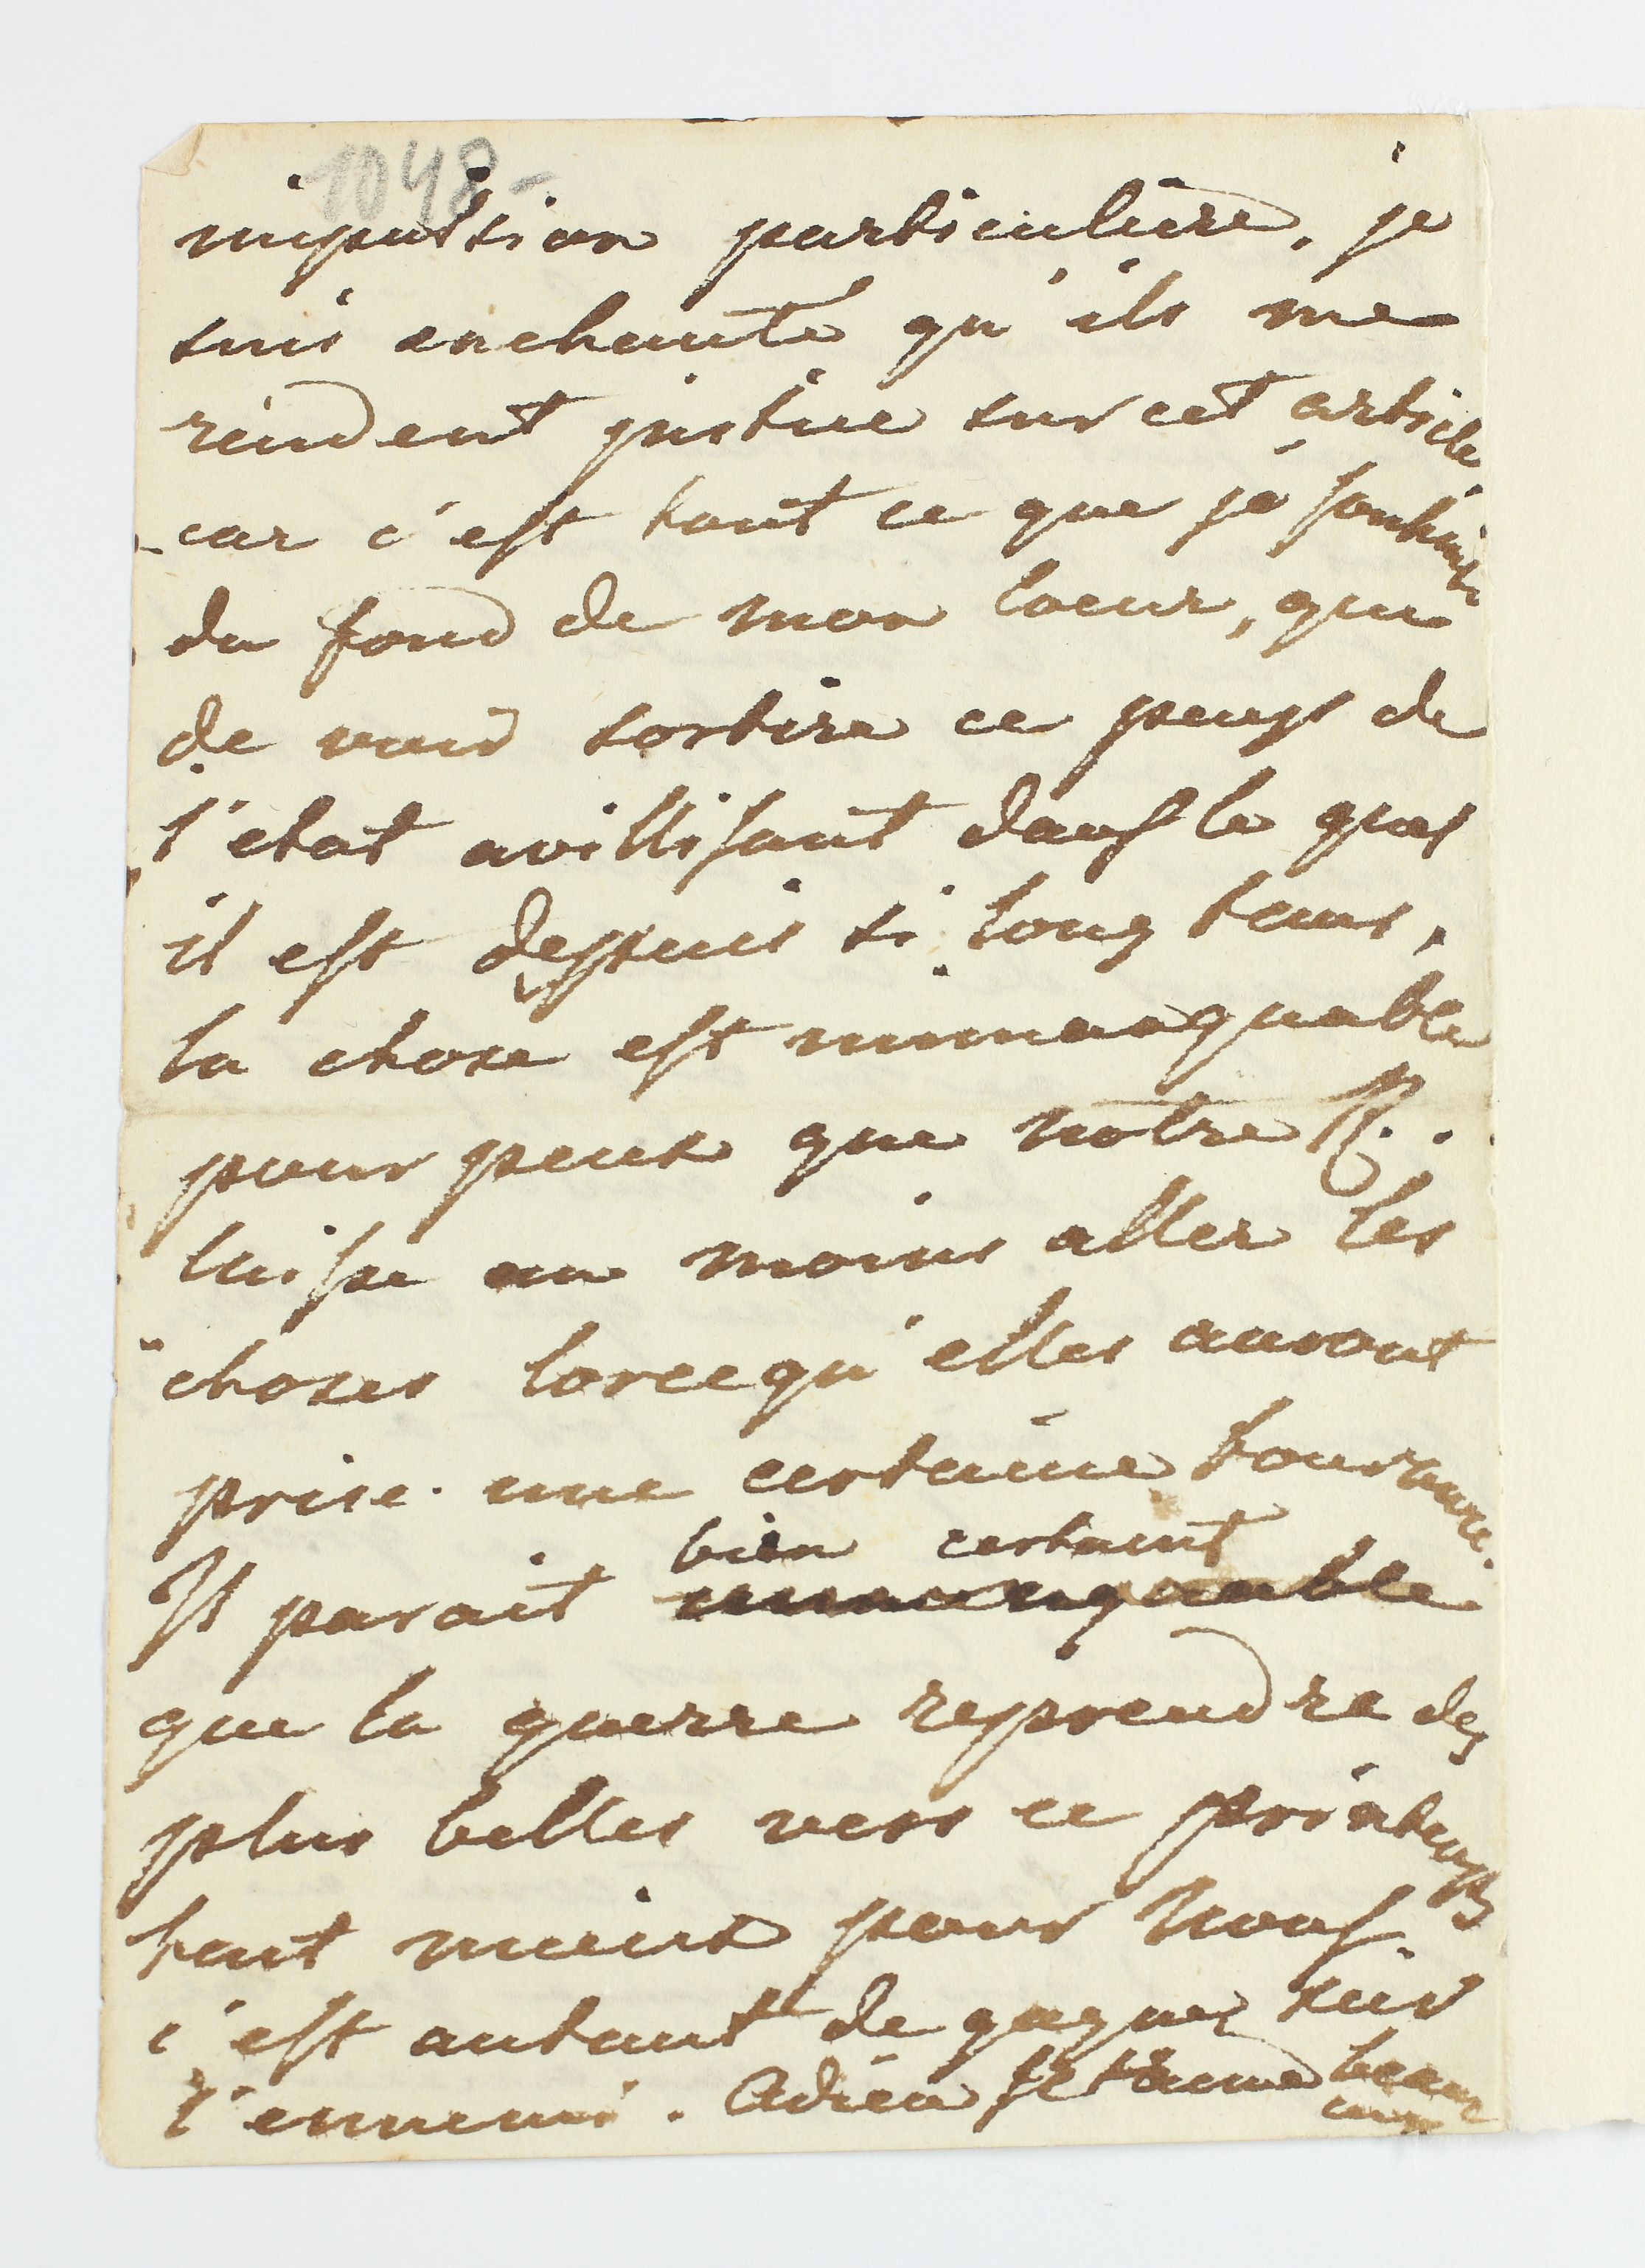 1048-
impultion particuliere, je
suis enchanté qu'ils me
rendent justice sur cet article
car c'est tout ce que je souhaite
du fond de mon coeur, que
de voir sortire ce peuys de
l'etat avillisant dans le quel
il est deppuis si long tems,
la chose est immanquable
pour peux que notre R..
laisse au moins aller les
choses lorcequ'elles auront
prise une certaine tournure.
bien certaint
Il parait immanquable
que la guerre reprendra des
plus belles vers ce printemps
tant mieux pour nous.
c'est autant de gagner sur
l'ennemi. Adieu je t'aime beau
coup